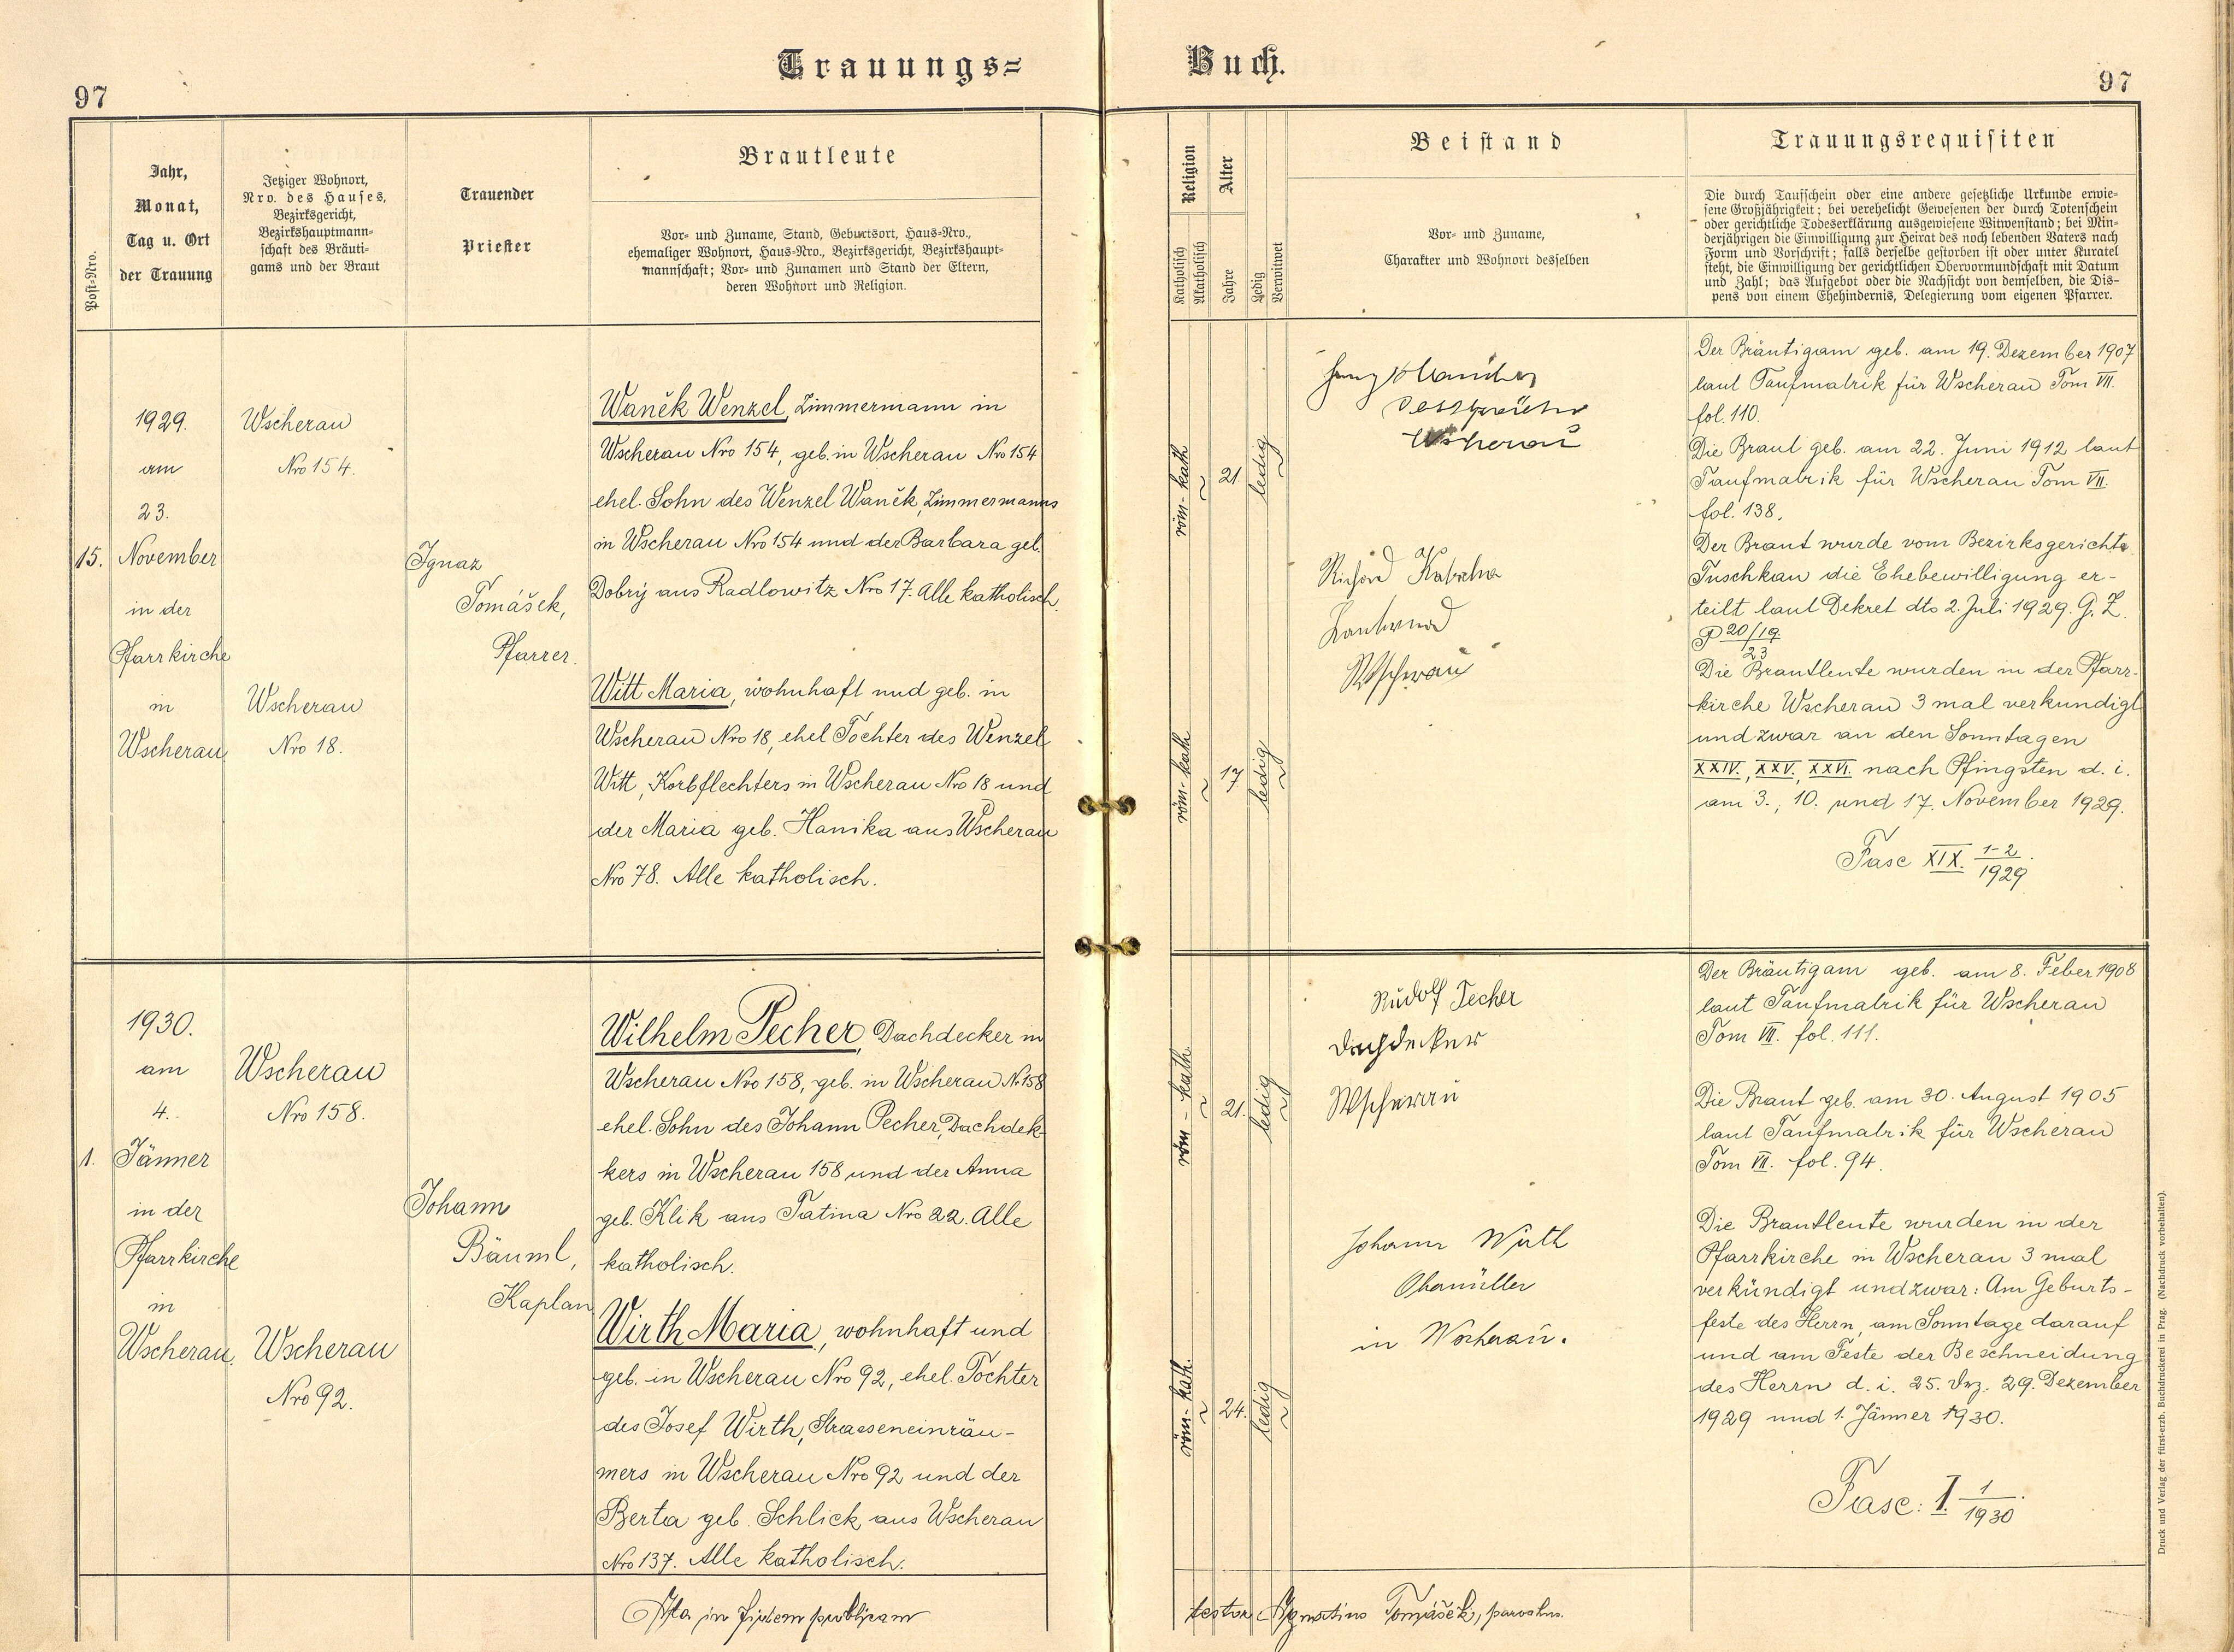 Trauungs=
Buch.
97
97
Post-Nro.
Jahr,
Monat,
Tag u. Ort
der Trauung
Jetziger Wohnort,
Nro. des Hauses,
Bezirksgericht,
Bezirkshauptmann-
schaft des Bräuti-
gams und der Braut
Trauender
Priester
Brautleute
Vor- und Zuname, Stand, Geburtsort, Haus-Nro.,
ehemaliger Wohnort, Haus-Nro., Bezirksgericht, Bezirkshaupt-
mannschaft; Vor- und Zunamen und Stand der Eltern,
deren Wohnort und Religion.
Religion
Katholisch
Akatholisch
Alter
Jahre
Ledig
Verwitwet
Beistand
Vor- und Zuname,
Charakter und Wohnort desselben
Trauungsrequisiten
Die durch Taufschein oder eine andere gesetzliche Urkunde erwie-
sene Großjährigkeit; bei verehelicht Gewesenen der durch Totenschein
oder gerichtliche Todeserklärung ausgewiesene Witwenstand; bei Min-
derjährigen die Einwilligung zur Heirat des noch lebenden Vaters nach
Form und Vorschrift; falls derselbe gestorben ist oder unter Kuratel
steht, die Einwilligung der gerichtlichen Obervormundschaft mit Datum
und Zahl; das Aufgebot oder die Nachsicht von demselben, die Dis-
pens von einem Ehehindernis, Delegierung vom eigenen Pfarrer.
15.
1929.
am
23.
November
in der
Pfarrkirche
in
Wscherau
Wscherau
Nro 154.
Wscherau
Nro 18.
Ignaz
Tomášek,
Pfarrer.
Waněk Wenzel, Zimmermann in
Wscherau Nro 154, geb. in Wscherau Nro 154
ehel. Sohn des Wenzel Waněk, Zimmermanns
in Wscherau Nro 154 und der Barbara geb.
Dobrý aus Radlowitz Nro 17. Alle katholisch.
Witt Maria, wohnhaft und geb. in
Wscherau Nro 18, ehel Tochter des Wenzel
Witt, Korbflechters in Wscherau Nro 18 und
der Maria geb. Hanika aus Wscherau
Nro 78. Alle katholisch.
röm-kath
21.
ledig
röm-kath
17
ledig
Wscherau
Richard
Wscherau
Der Bräutigam geb. am 19. Dezember 1907
laut Taufmatrik für Wscherau Tom VII.
fol. 110.
Die Braut geb. am 22. Juni 1912 laut
Taufmatrik für Wscherau Tom VII.
fol. 138.
Der Braut wurde vom Bezirksgerichte
Tuschkau die Ehebewilligung er-
teilt laut Dekret dto 2. Juli 1929. G. Z.
P 20/19
23
Die Brautleute wurden in der Pfarr-
kirche Wscherau 3 mal verkündigt
und zwar an den Sonntagen
XXIV., XXV., XXVI. nach Pfingsten d. i.
am 3., 10. und 17. November 1929.
Fasc XIX. 1-2/1929.
1.
1930.
am
4.
Jänner
in der
Pfarrkirche
in
Wscherau.
Wscherau
Nro 158.
Wscherau
Nro 92.
Johann
Bäuml,
Kaplan
Wilhelm Pecher, Dachdecker in
Wscherau Nro 158, geb. in Wscherau N. 158
ehel. Sohn des Johann Pecher, Dachdek-
kers in Wscherau 158 und der Anna
geb. Klik aus Tatina Nro 22. Alle
katholisch.
Wirth Maria, wohnhaft und
geb. in Wscherau Nro 92, ehel. Tochter
des Josef Wirth, Strasseneinräu-
mers in Wscherau Nro 92 und der
Berta geb. Schlick aus Wscherau
Nro 137. Alle katholisch.
röm-kath.
21.
ledig
röm-kath.
24.
ledig
Rudolf Pecher
Dachdecker
Wscherau
Johann Wirth
Obermüller
in Wscherau.
Der Bräutigam geb. am 8. Feber 1908
laut Taufmatrik für Wscherau
Tom VII. fol. 111.
Die Braut geb. am 30. August 1905
laut Taufmatrik für Wscherau
Tom VII. fol. 94.
Die Brautleute wurden in der
Pfarrkirche in Wscherau 3 mal
verkündigt und zwar: Am Geburts-
feste des Herrn, am Sonntage darauf
und am Feste der Beschneidung
des Herrn d. i. 25. Dez. 29. Dezember
1929 und 1. Jänner 1930.
Fasc: I. 1/1930.
Ita in fidem publicam
testor Ignatius Tomášek, parochus.
Druck und Verlag der fürst-erzb. Buchdruckerei in Prag. (Nachdruck vorbehalten).